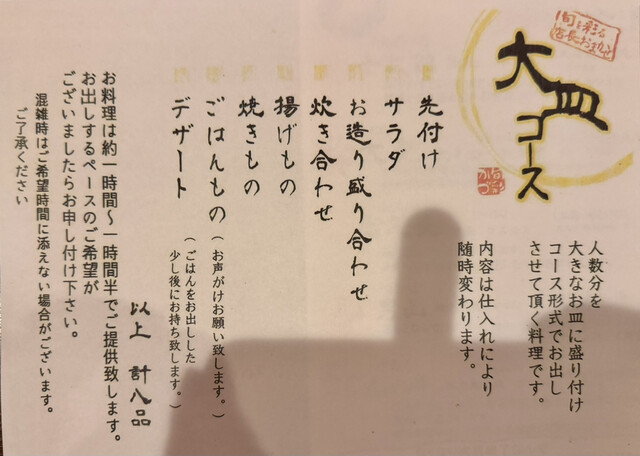 旬を彩る
店長おまかせ
大皿コース
人数分を
大きなお皿に盛り付け
コース形式でお出し
させて頂く料理です。
内容は仕入れにより
随時変わります。
先付け
サラダ
お造り盛り合わせ
炊き合わせ
揚げもの
焼きもの
ごはんもの（お声がけお願い致します。）
デザート（ごはんをお出しした
少し後にお持ち致します。）
以上 計八品
お料理は約一時間〜一時間半でご提供致します。
お出しするペースのご希望が
ございましたらお申し付け下さい。
混雑時はご希望時間に添えない場合がございます。
ご了承ください